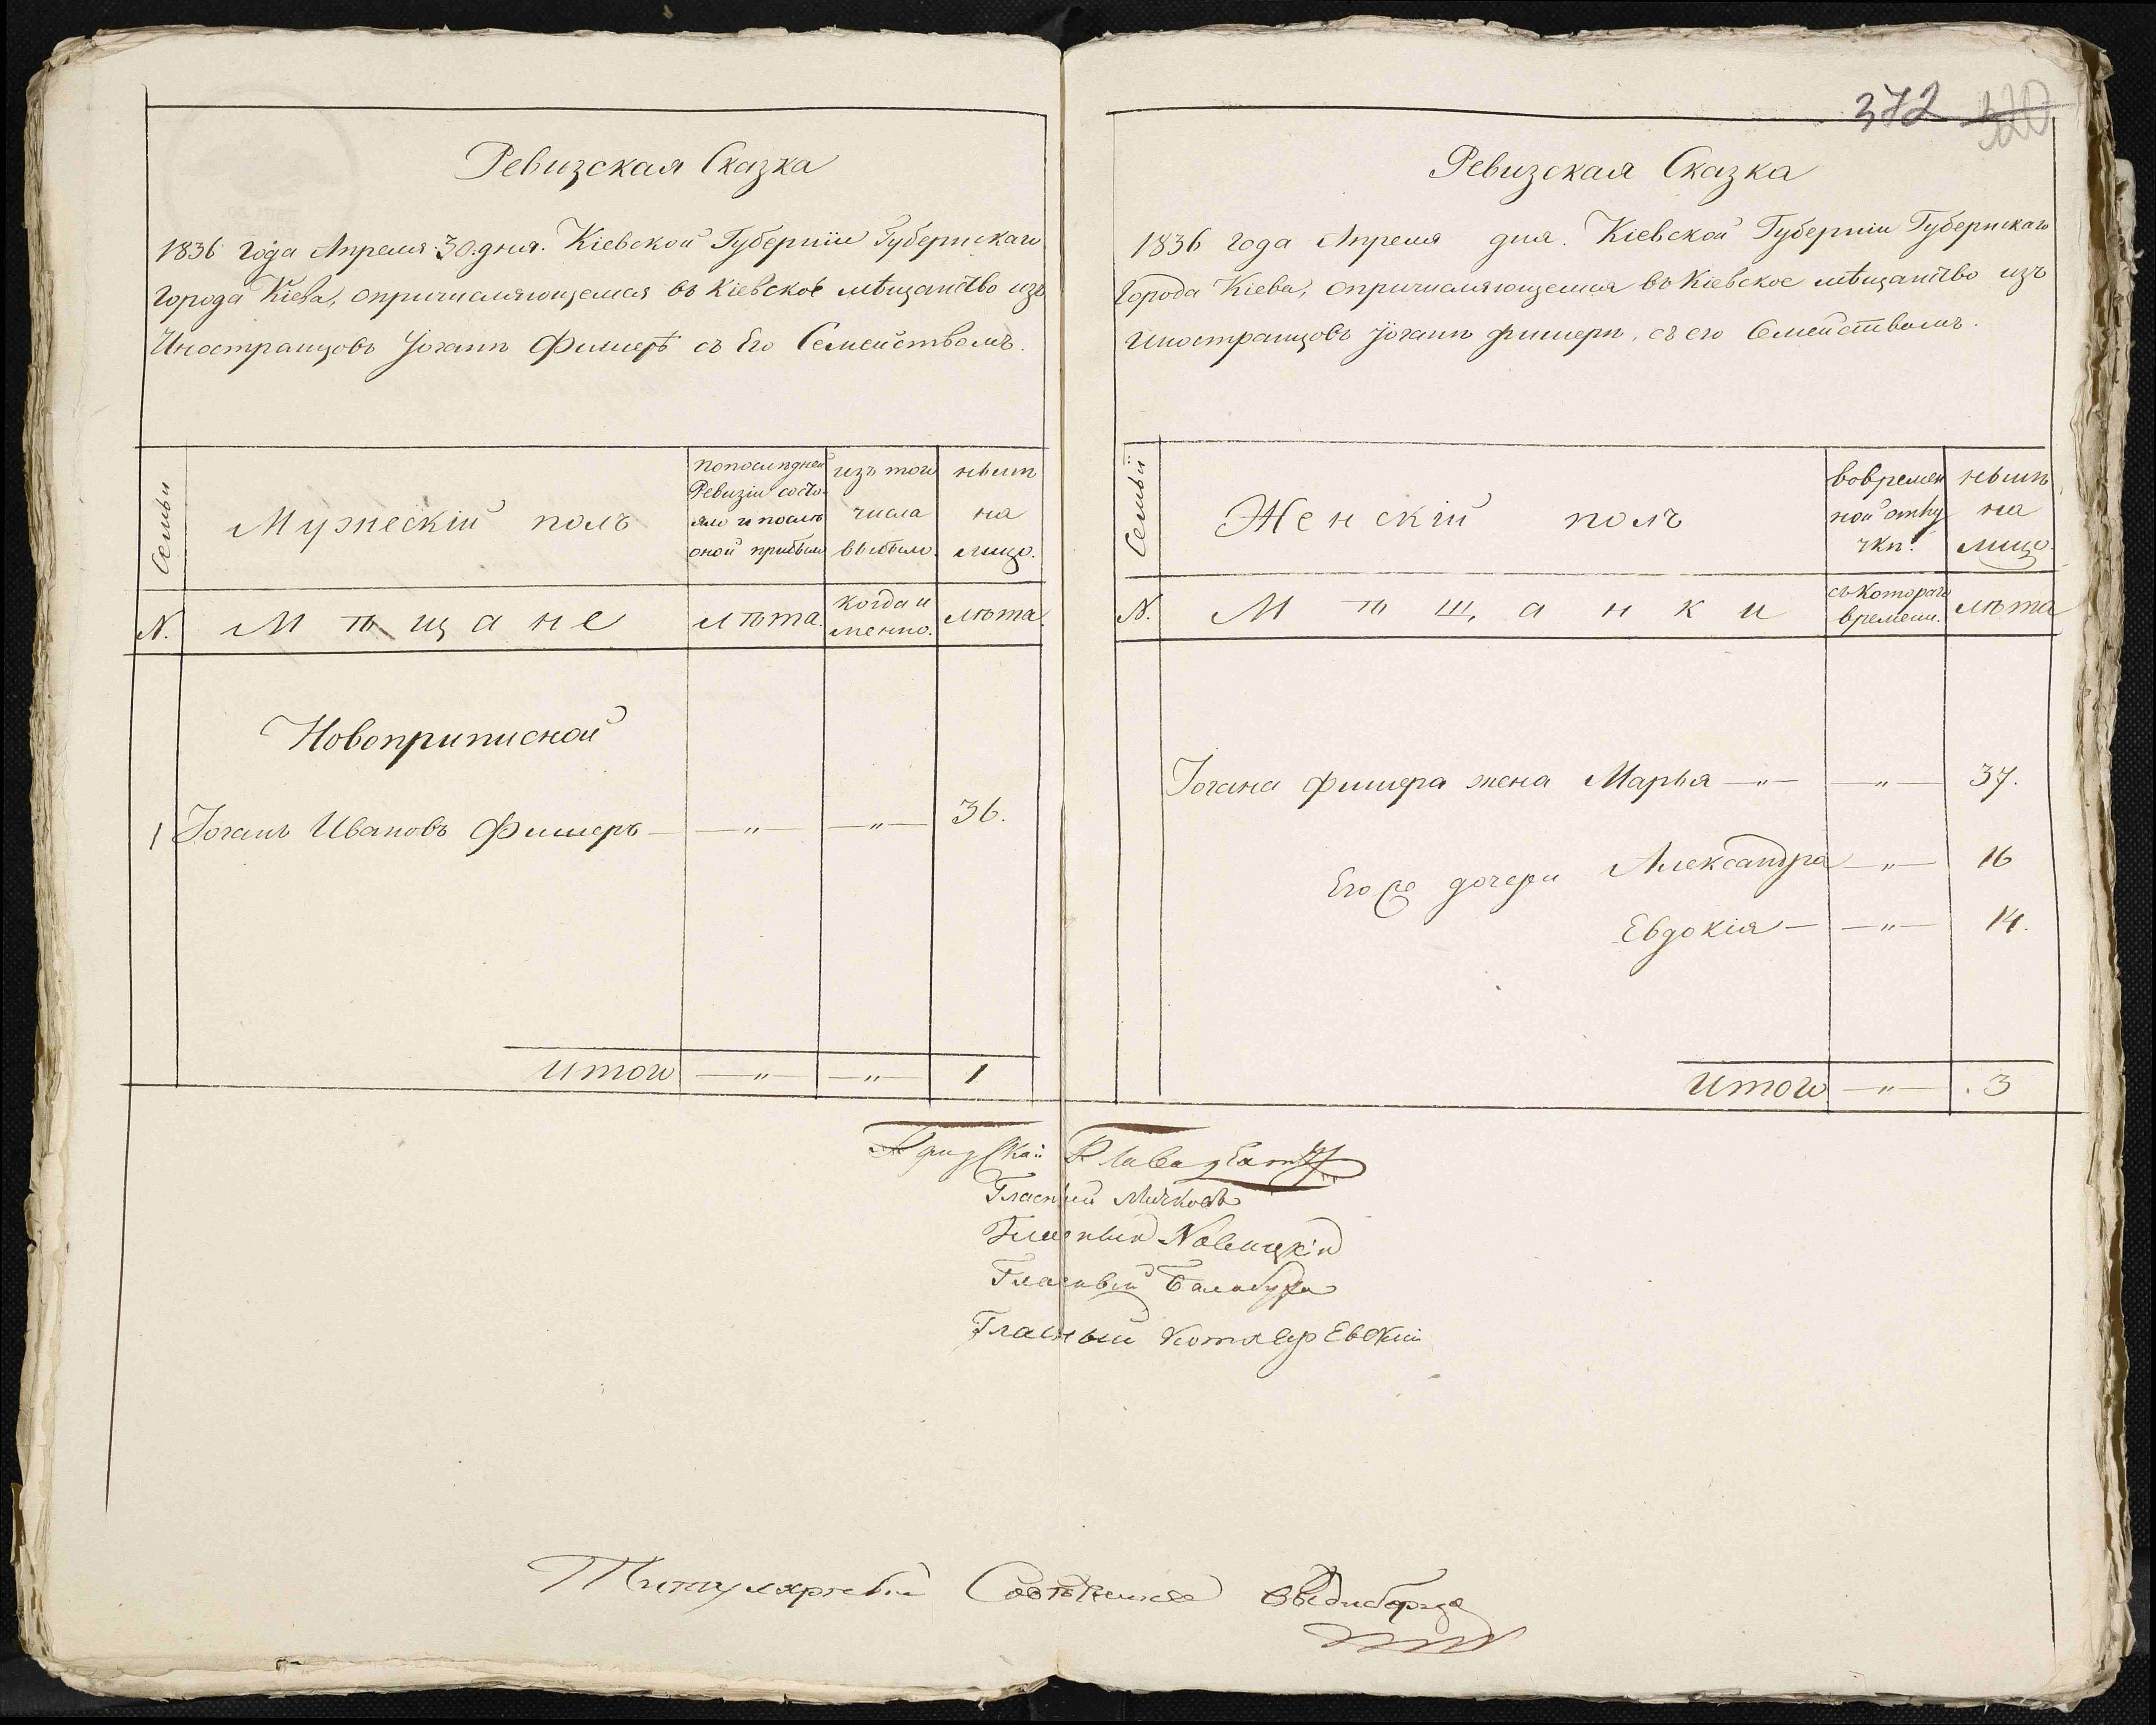 Ревизская Сказка
1836 года Апреля 30. дня. Кіевской Губерніи Губернскаго
города Кіева, опричисляющемся въ Кіевское мѣщанство изъ
Иностранцовъ Іоганѣ Фишерѣ съ Его Семействомъ.
Семьи
Мужескій полъ
по последней
Ревизіи состо-
яло и послѣ
оной прибыло
изъ того
числа
выбыло.
нынѣ
на
лицо.
N.
Мѣщане
лѣта.
когда и
менно.
лѣта.
Новоприписной
1 Іоганъ Ивановъ Фишеръ — — " — — " — 36.
Итого — " — — " — 1
372 320
Ревизская Сказка
1836 года Апреля дня. Кіевской Губерніи Губернскаго
Города Кіева, опричисляющемся въ Кіевское мѣщанство изъ
иностранцовъ Іоганѣ фишерѣ, съ его Семействомъ.
Семьи
Женскій полъ
во времен
ной отлу
чкѣ.
нынѣ
на
лицо.
N.
Мѣщанки
съ котораго
времени.
лѣта
Іогана фишера жена Марья — " — — " — 37.
Его же дочери Александра — " — 16
Евдокія — — " — 14.
Итого — " — 3
Гласный
Гласный Новицкій
Гласный Балабуха
Гласный Котляревскій
Титулярный Советникъ